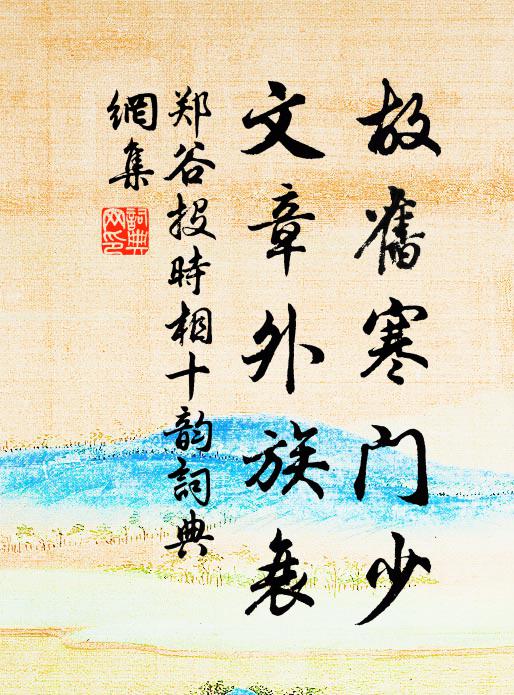 故舊寒门少
文章外族衰
郑谷投時相十韵詞典
網集
詞典
网印